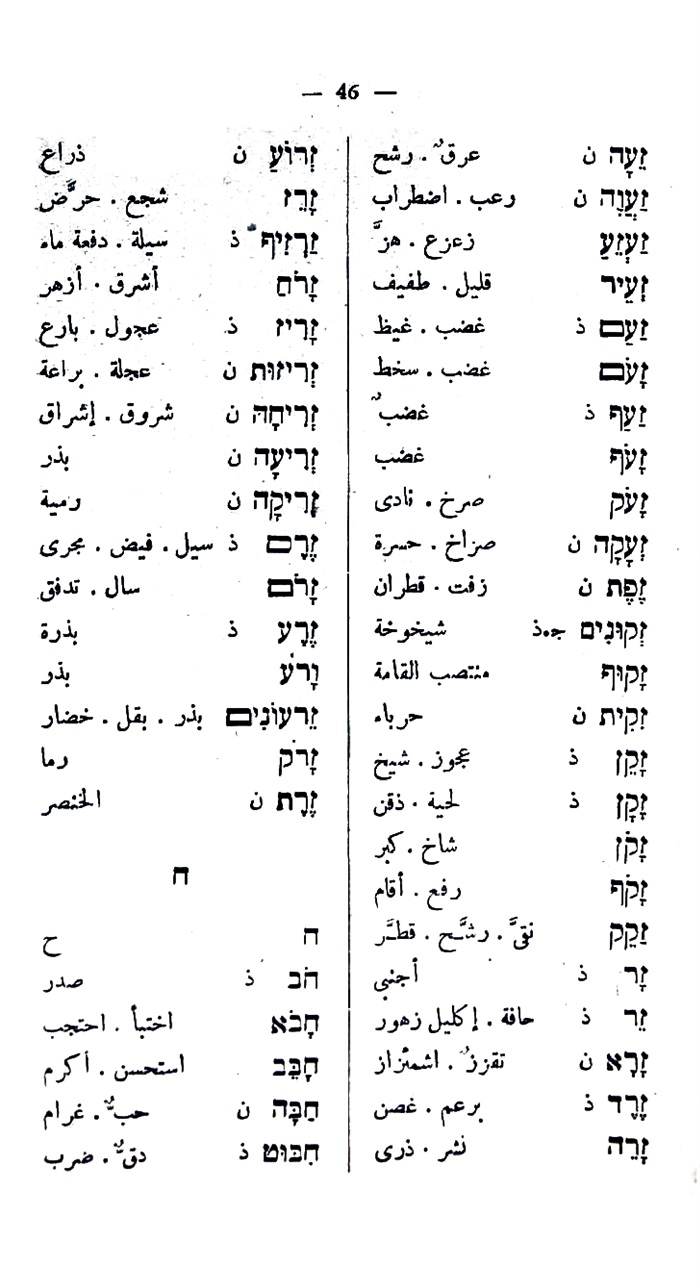 — 46 —
זֵעָה ن عرقٌ . رشح
זַעֲוָה ن رعب . اضطراب
זַעְזֵעַ زعزع . هزَّ
זְעֵיר قليل . طفيف
זַעַם ذ غضب . غيظ
זָעֹם غضب . سخط
זַעַף ذ غضبٌ
זָעֹף غضب
זָעֹק صرخ . نادى
זְעָקָה ن صراخ . حسرة
זֶפֶת ن زفت . قطران
זְקוּנִים ج.ذ شيخوخة
זָקוּף منتصب القامة
זִקִית ن حرباء
זָקֵן ذ عجوز . شيخ
זָקָן ذ لحية . ذقن
זָקֹן شاخ . كبر
זָקֹף رفع . أقام
זַקֵק نقىَّ . رشَّح . قطَّر
זָר ذ أجنبي
זֵר ذ حافة . إكليل زهور
זָרָא ن تقززٌ . اشمئزاز
זֶרֶד ذ برعم . غصن
זָרֵה نشر . ذرى
זְרוֹעַ ن ذراع
זָרֵז شجع . حرَّض
זַרְזִיף ذ سيلة . دفعة ماء
זָרֹחַ أشرق . أزهر
זָרִיז ذ عجول . بارع
זְרִיזוּת ن عجلة . براعة
זְרִיחָה ن شروق . إشراق
זְרִיעָה ن بذر
זְרִיקָה ن رمية
זֶרֶם ذ سيل . فيض . مجرى
זָרֹם سال . تدفق
זֶרַע ذ بذرة
זָרֹע بذر
זֵרְעוֹנִים بذر . بقل . خضار
זָרֹק رما
זֶרֶת ن الخنصر
ח
ח ح
חֹב ذ صدر
חָבֹא اختبأ . احتجب
חָבֵּב استحسن . أكرم
חַבָּה ن حبٌّ . غرام
חִבּוּט ذ دقٌّ . ضرب